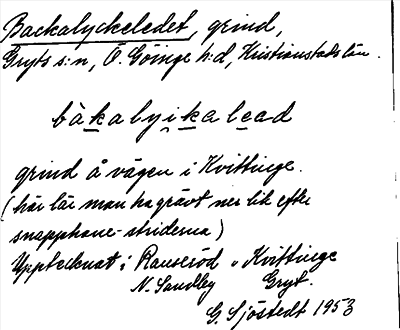 Backalyckeledet, grind,
Gryts s:n, Ö. Göinge h:d, Kristianstads län.
bàkalyikalead
grind å vägen i Kvittinge.
(här lär man ha grävt ner lik efter
snapphane-striderna)
Upptecknat i Rauseröd o Kvittinge
N. Sandby Gryt.
G. Sjöstedt 1953